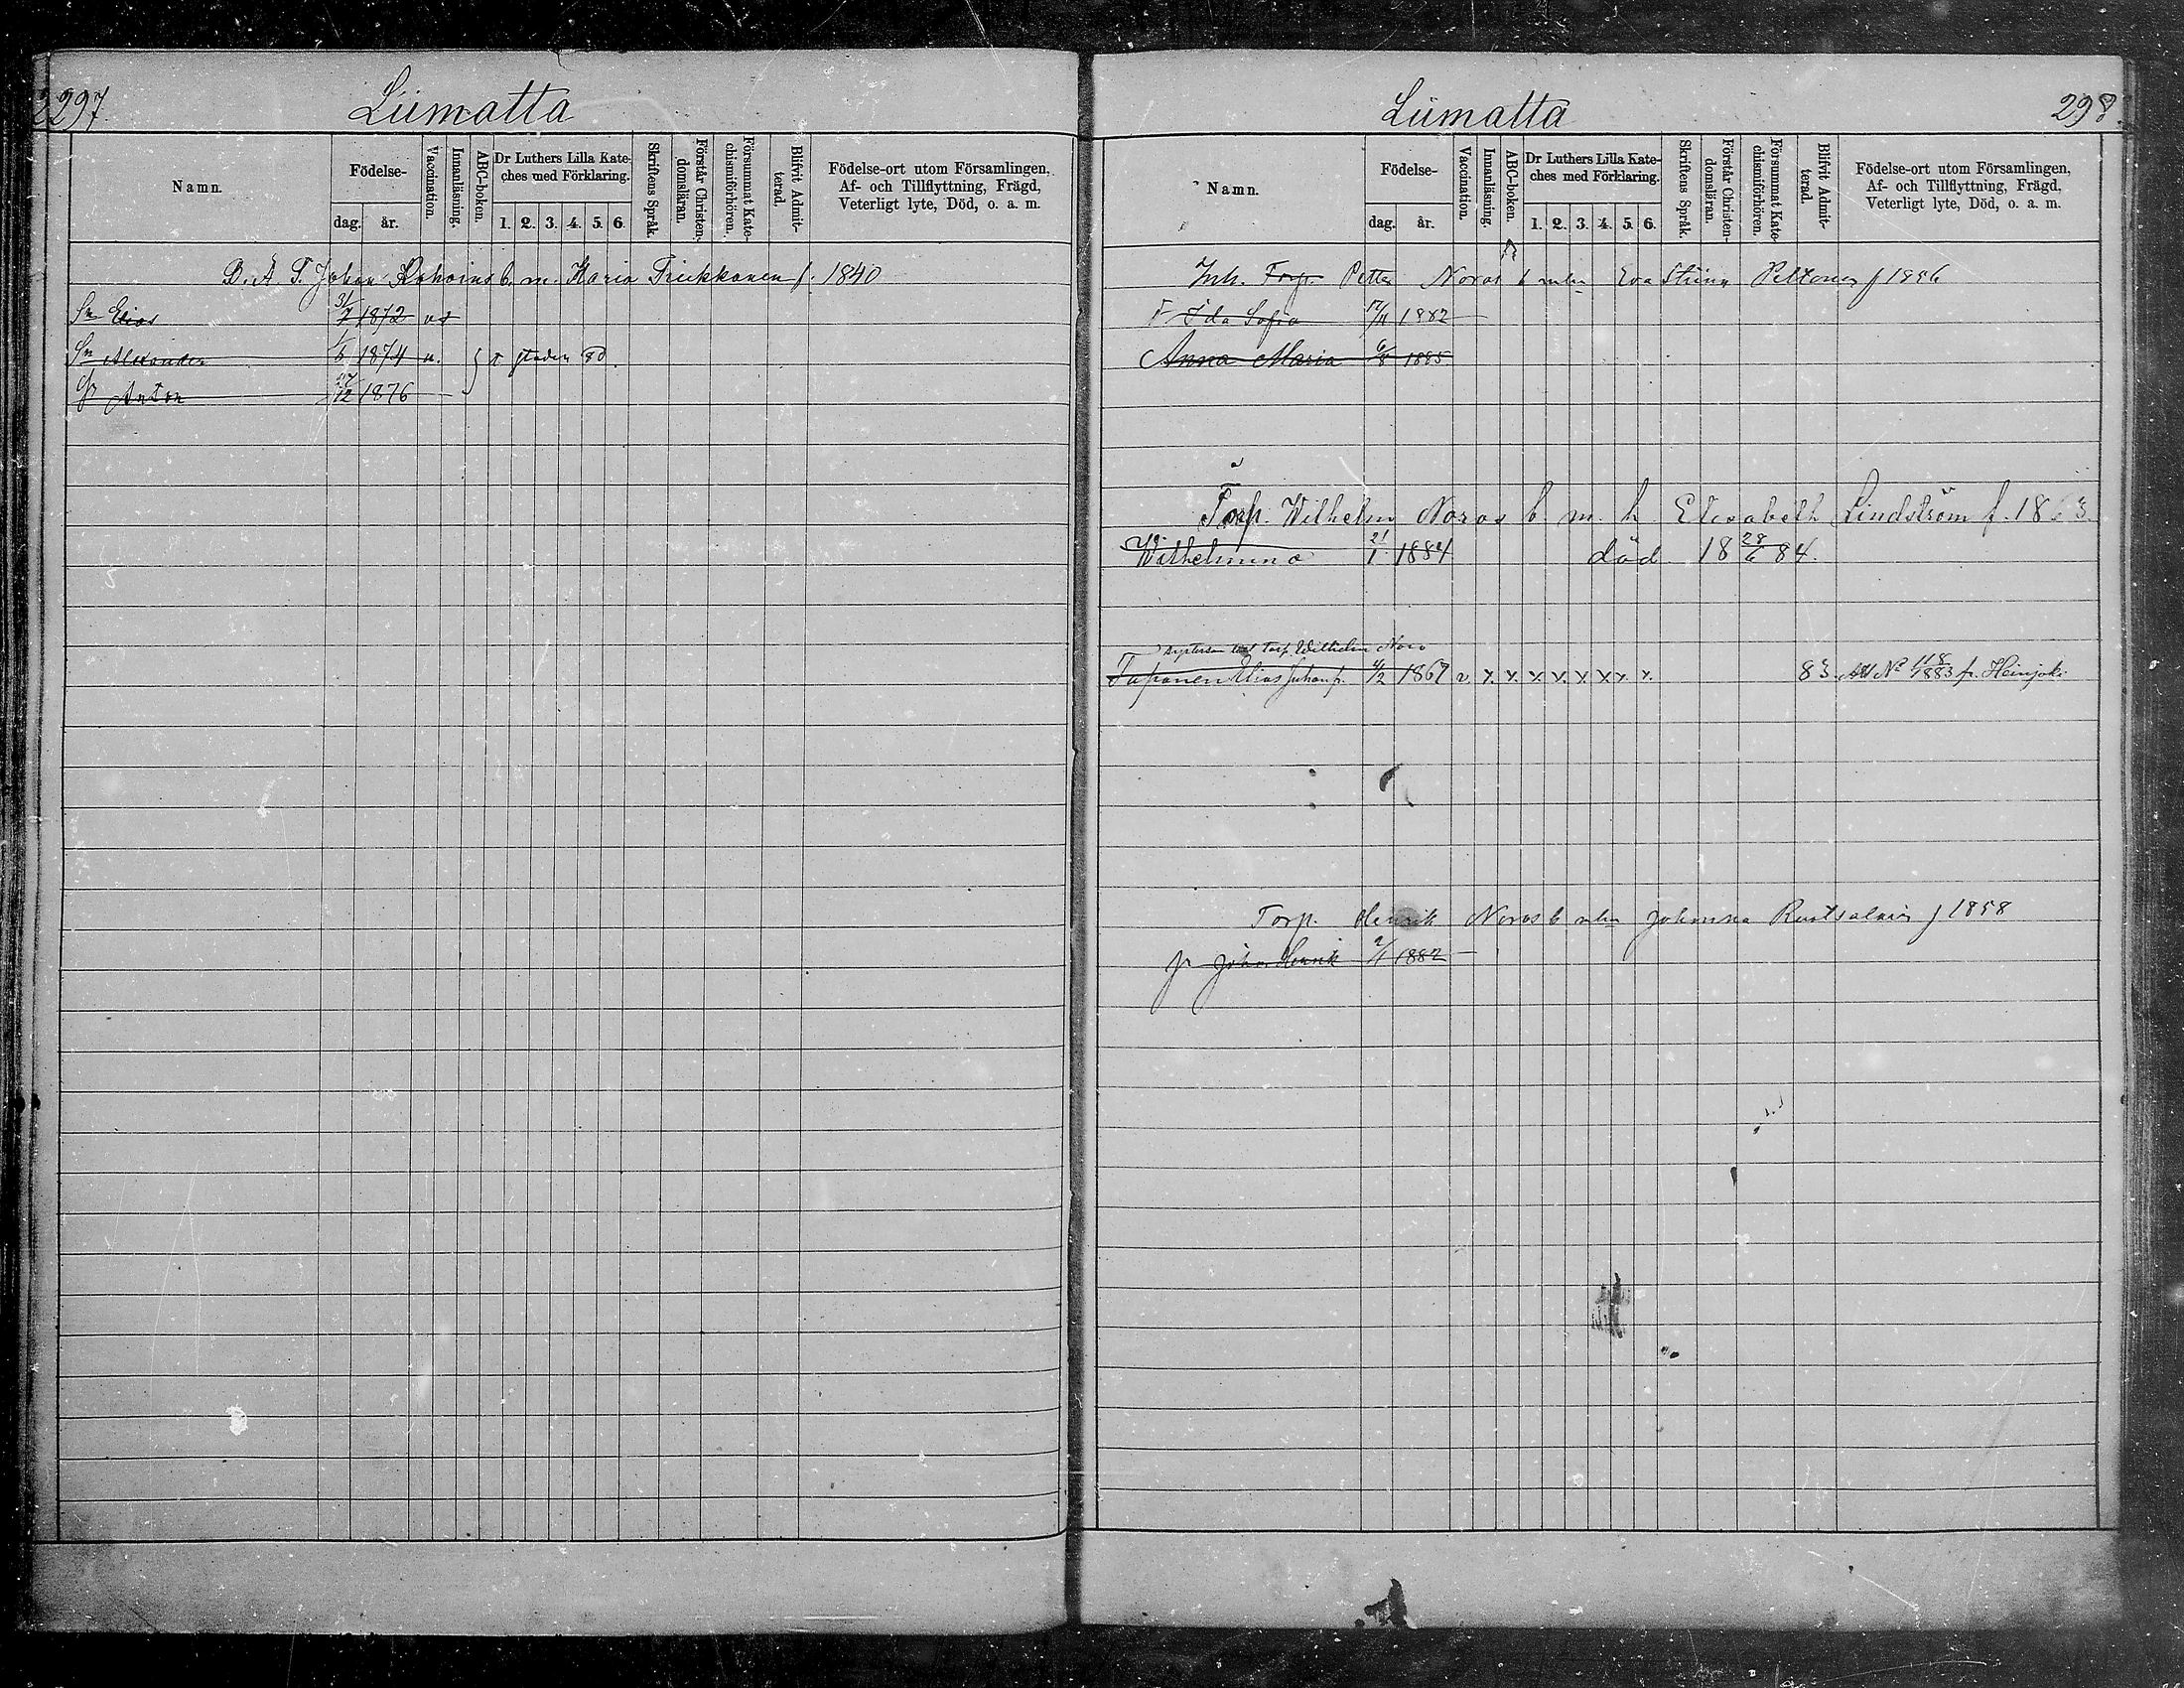 297.
Liimatta
Namn.
Födelse-
dag.
år.
Vaccination.
Innanläsning.
ABC-boken.
Dr Luthers Lilla Kate-
ches med Förklaring.
1. 2. 3. 4. 5. 6.
Skriftens Språk.
Förstår Christen-
domsläran.
Försummat Kate-
chismiförhören.
Blifvit Admit-
terad.
Födelse-ort utom Församlingen,
Af- och Tillflyttning, Frägd,
Veterligt lyte, Död, o. a. m.
Johan b. m. Maria f. 1840
Sn Elias 31/7 1872
Sn Alexander 1/6 1874 v.
Gr Anton 27/12 1876
Liimatta
298.
Namn.
Födelse-
dag.
år.
Vaccination.
Innanläsning.
ABC-boken.
Dr Luthers Lilla Kate-
ches med Förklaring.
1. 2. 3. 4. 5. 6.
Skriftens Språk.
Förstår Christen-
domsläran.
Försummat Kate-
chismiförhören.
Blifvit Admit-
terad.
Födelse-ort utom Församlingen,
Af- och Tillflyttning, Frägd,
Veterligt lyte, Död, o. a. m.
Inh. Torp. Petter Noros b Eva Stiina Peltonen f 1856
Ida Sofia 17/11 1882
Anna Maria 6/8 1885
Torp. Wilhelm Noros b. m. h Elisabeth Lindström f. 1863.
Wilhelmina 21/1 1884 död 18 28/6 84.
Torp. Wilhelm Noro
Taponen Elias Johan 4/2 1867 v x x x x x x x x 83. Att No 118/1883 fr. Heinjoki
Torp. Henrik Noros b Johanna f 1858
Johan Henrik 2/1 1882